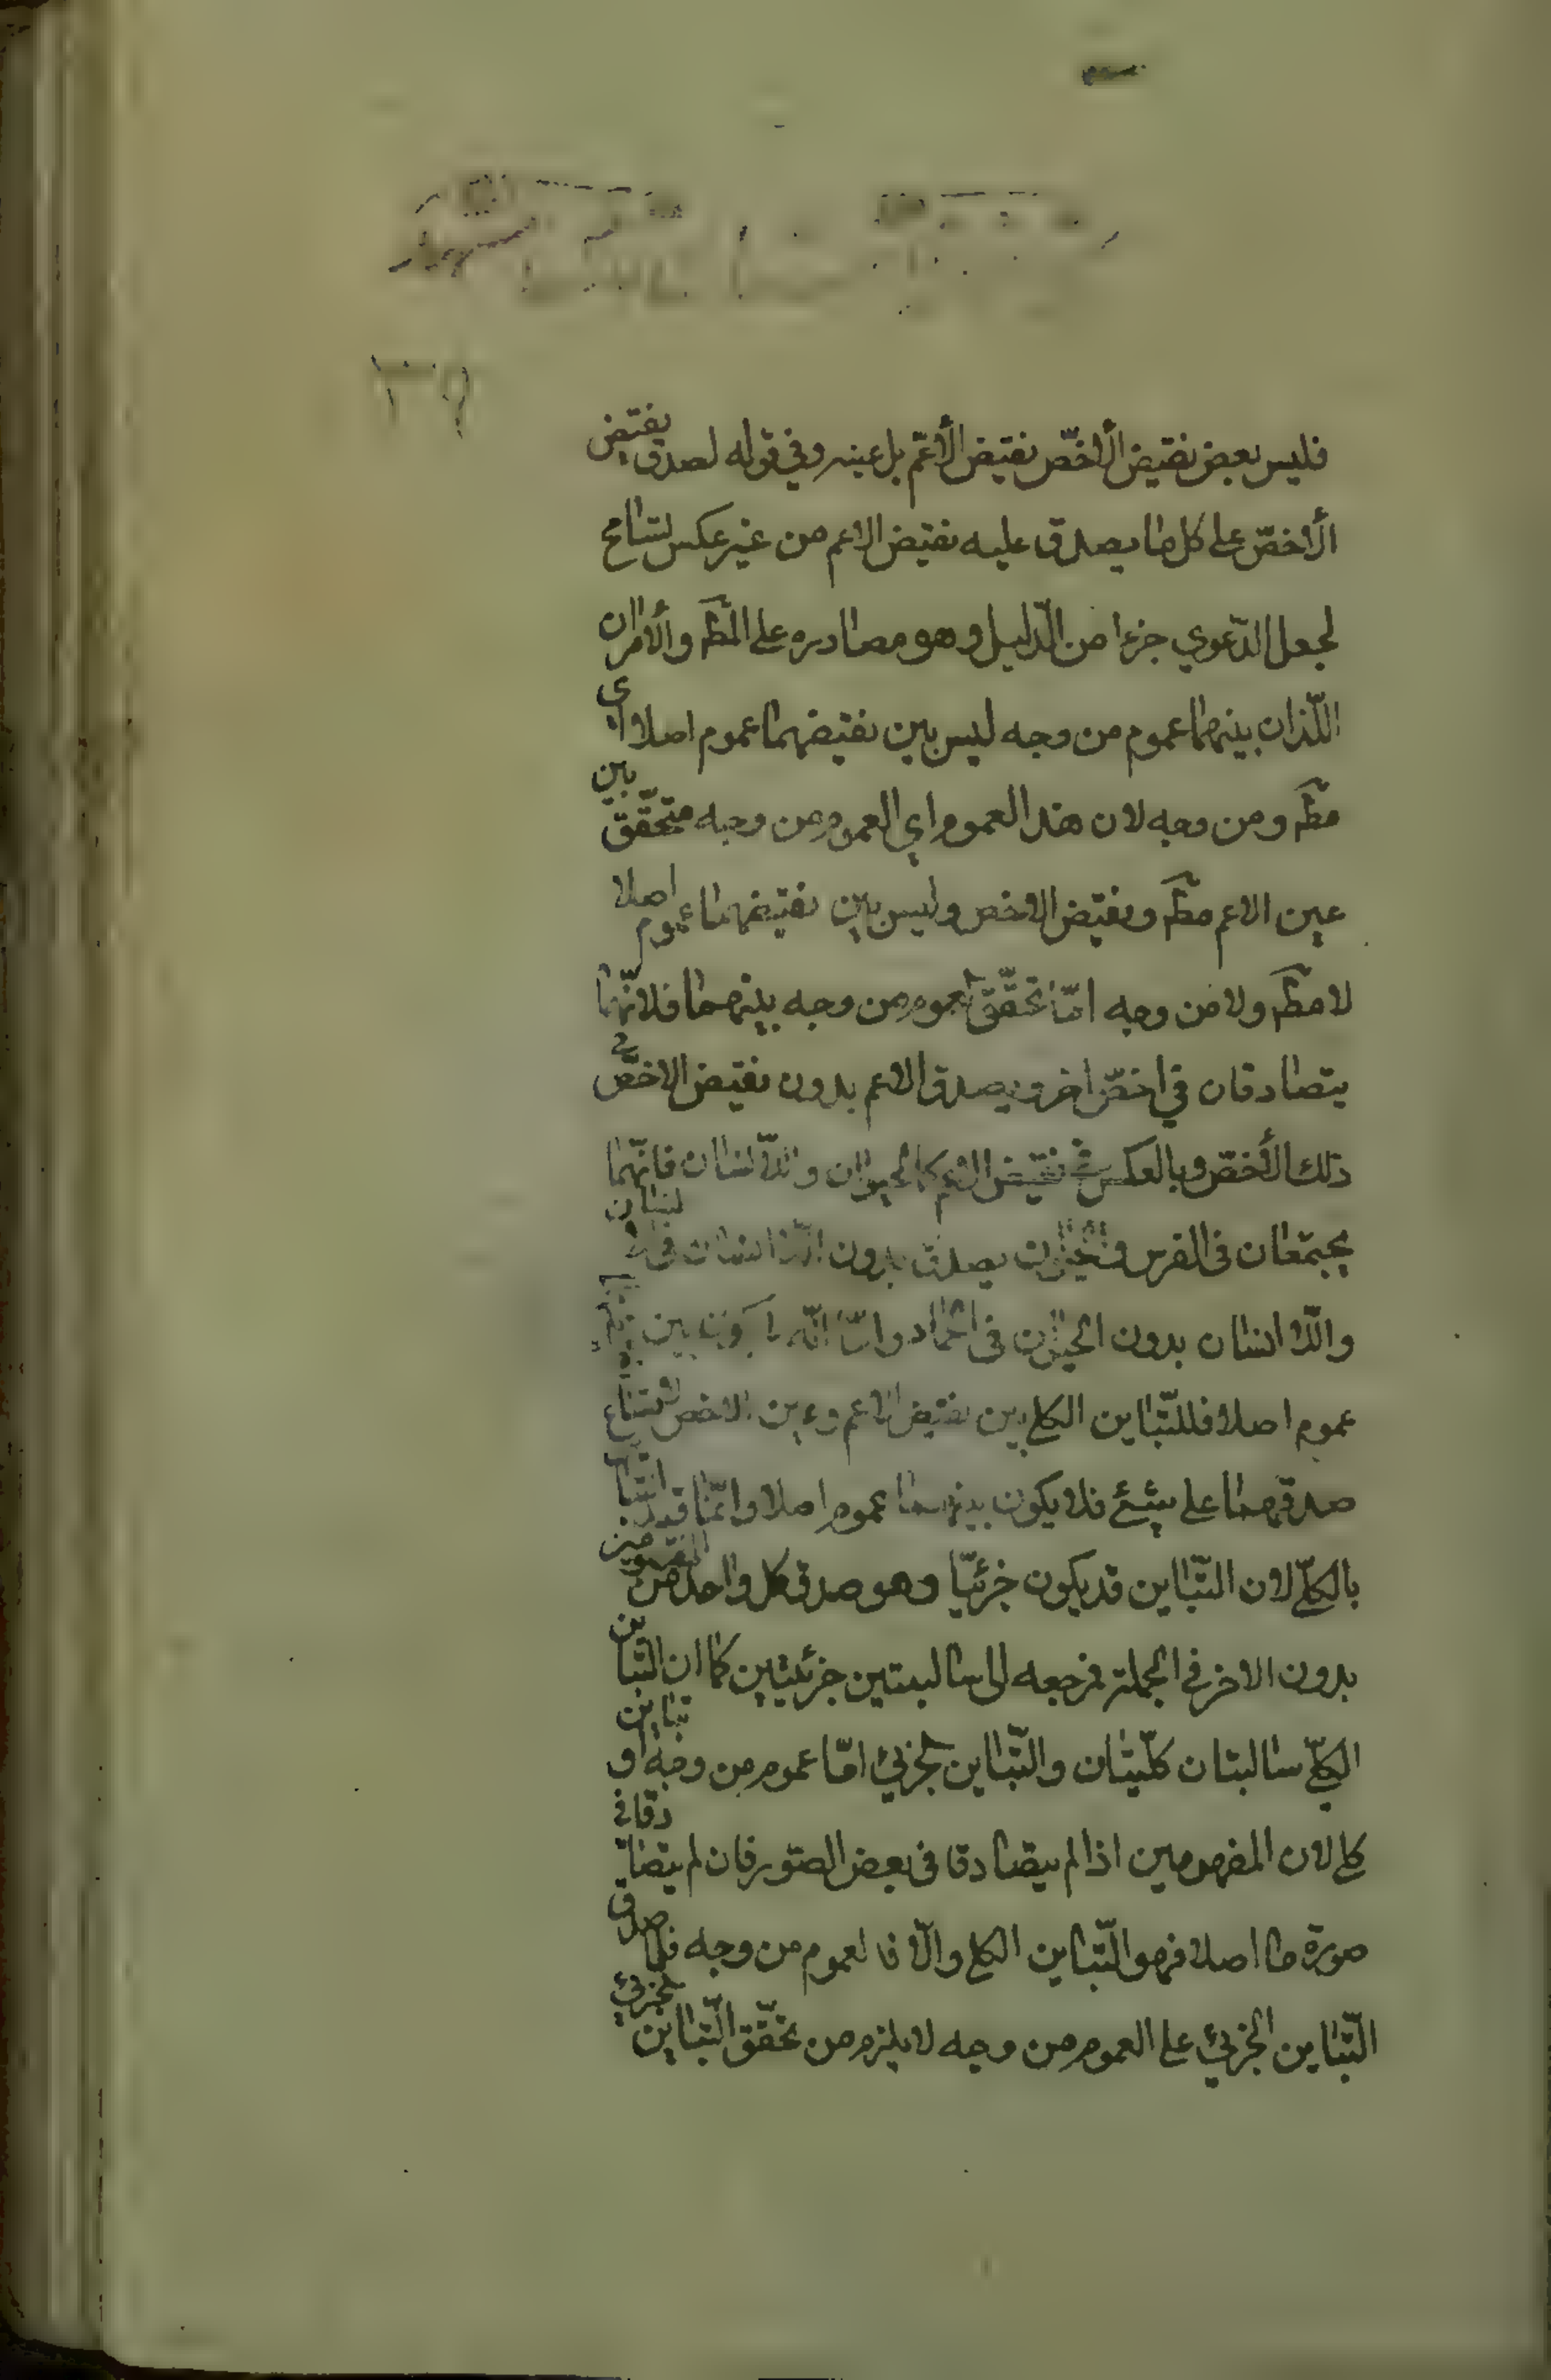 فليس بعض نقيض الأخصّ نقيض الأعمّ بل عينه وفي قوله لصدق نقيض
الأخصّ على كل ما يصدق عليه نقيض الاعم من غير عكس تسامح
لجعل الدّعوي جزءا من الدّليل وهو مصادره على المطَ والأمران
اللّذان بينهما عموم من وجه ليس بين نقيضهما عموم اصلا اي
مطَ ومن وجه لان هذا العموم اي العموم من وجه متحقّق بين
عين الاعم مطَ ونقيض الاخص وليس بين نقيضهما عموم اصلا
لا مطَ ولا من وجه امّا تحقّق العموم من وجه بينهما فلانّهما
يتصادقان في اخصّ اخر ويصدق الاعم بدون نقيض الاخصّ في
ذلك الأخصّ وبالعكس في نقيض الاعم كالحيوان واللّا انسان فانّهما
يجتمعان في الفرس والحيوان يصدق بدون اللّا انسان في
واللّا انسان بدون الحيوان في الجماد وامّا انّه لا يكون بين
عموم اصلا فللتّباين الكلي بين نقيض الاعم وعين الاخص لامتناع
صدقهما على شئ فلا يكون بينهما عموم اصلا وانّما قيد التّباين
بالكلّي لان التّباين قد يكون جزئيّا وهو صدق كل واحد من المفهومين
بدون الاخر في الجملة فمرجعه الى سالبتين جزئيتين كما ان التّباين
الكلّي سالبتان كلّيتان والتّباين الجزئي امّا عموم من وجه او تباين
كلي لان المفهومين اذا لم يتصادقا في بعض الصّور فان لم يتصادقا في
صورة ما اصلا فهو التّباين الكلي والّا فالعموم من وجه فلمّا صدق
التّباين الجزئي على العموم من وجه لا يلزم من تحقّق التّباين الجزئي